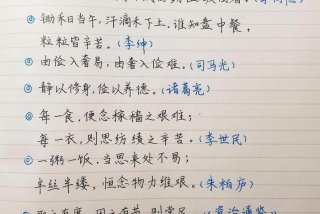 锄禾日当午,汗滴禾下土。谁知盘中餐,
粒粒皆辛苦。(李绅)
由俭入奢易,由奢入俭难。(司马光)
静以修身,俭以养德。(诸葛亮)
每一食,便念稼穑之艰难;
每一衣,则思纺绩之辛苦。(李世民)
一粥一饭,当思来处不易;
半丝半缕,恒念物力维艰。(朱柏庐)